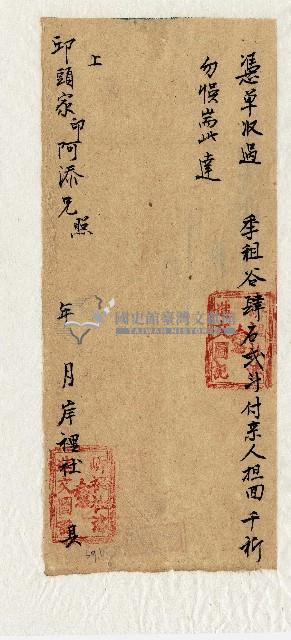 憑单收過　季租谷肆石弍斗付来人担回千祈
勿悞耑此達
上
邱頭家即阿添兄照
年　月　岸裡社　具
國史館臺灣文獻館
TAIWAN HISTORICA